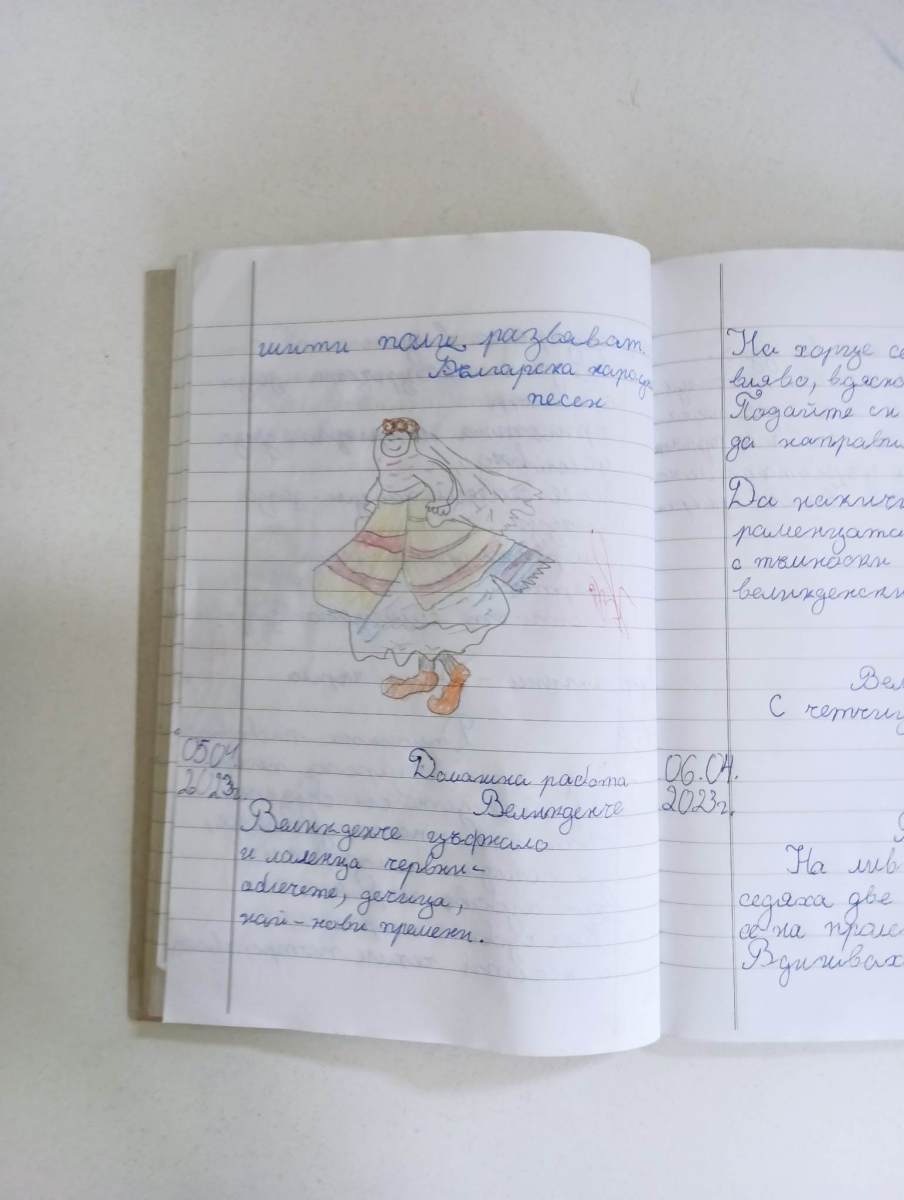 шити поли развяват.
Българска народна
песен
05.04
2023г.
Домашна работа
Великденче
Великденче цъфнало
и лаленца червени-
облечете, дечица,
най-нови премени.
На хорце се
вляво, вдясно
Подайте си
да направи
Да накичи
раменцата
с тъмноски
великденски
Вел
С четчиц
06.04.
2023г.
На лив
седяха две
се на прол
Вдигвах